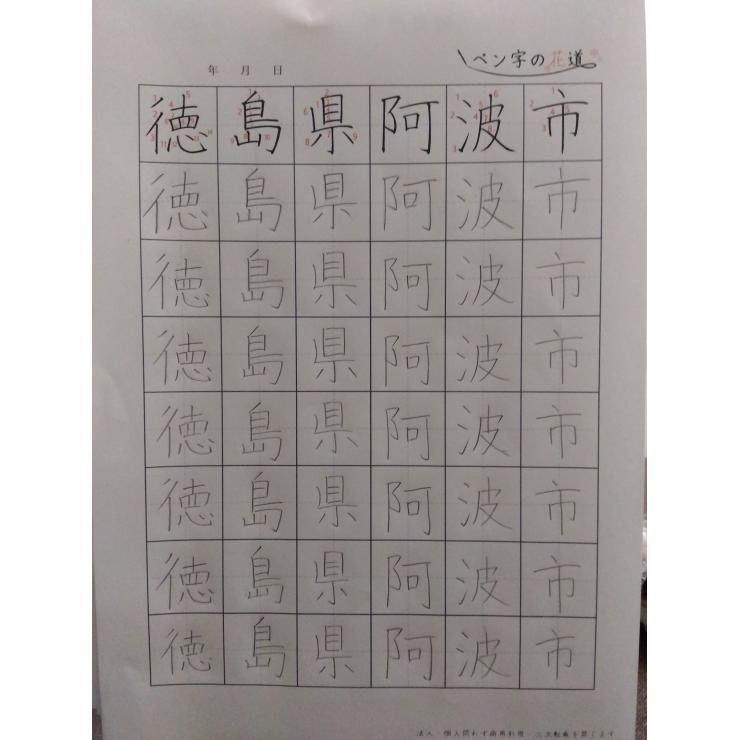 ペン字の花道
年 月 日
徳島県阿波市
徳島県阿波市
徳島県阿波市
徳島県阿波市
徳島県阿波市
徳島県阿波市
徳島県阿波市
徳島県阿波市
法人・個人問わず商用利用・二次転載を禁じます